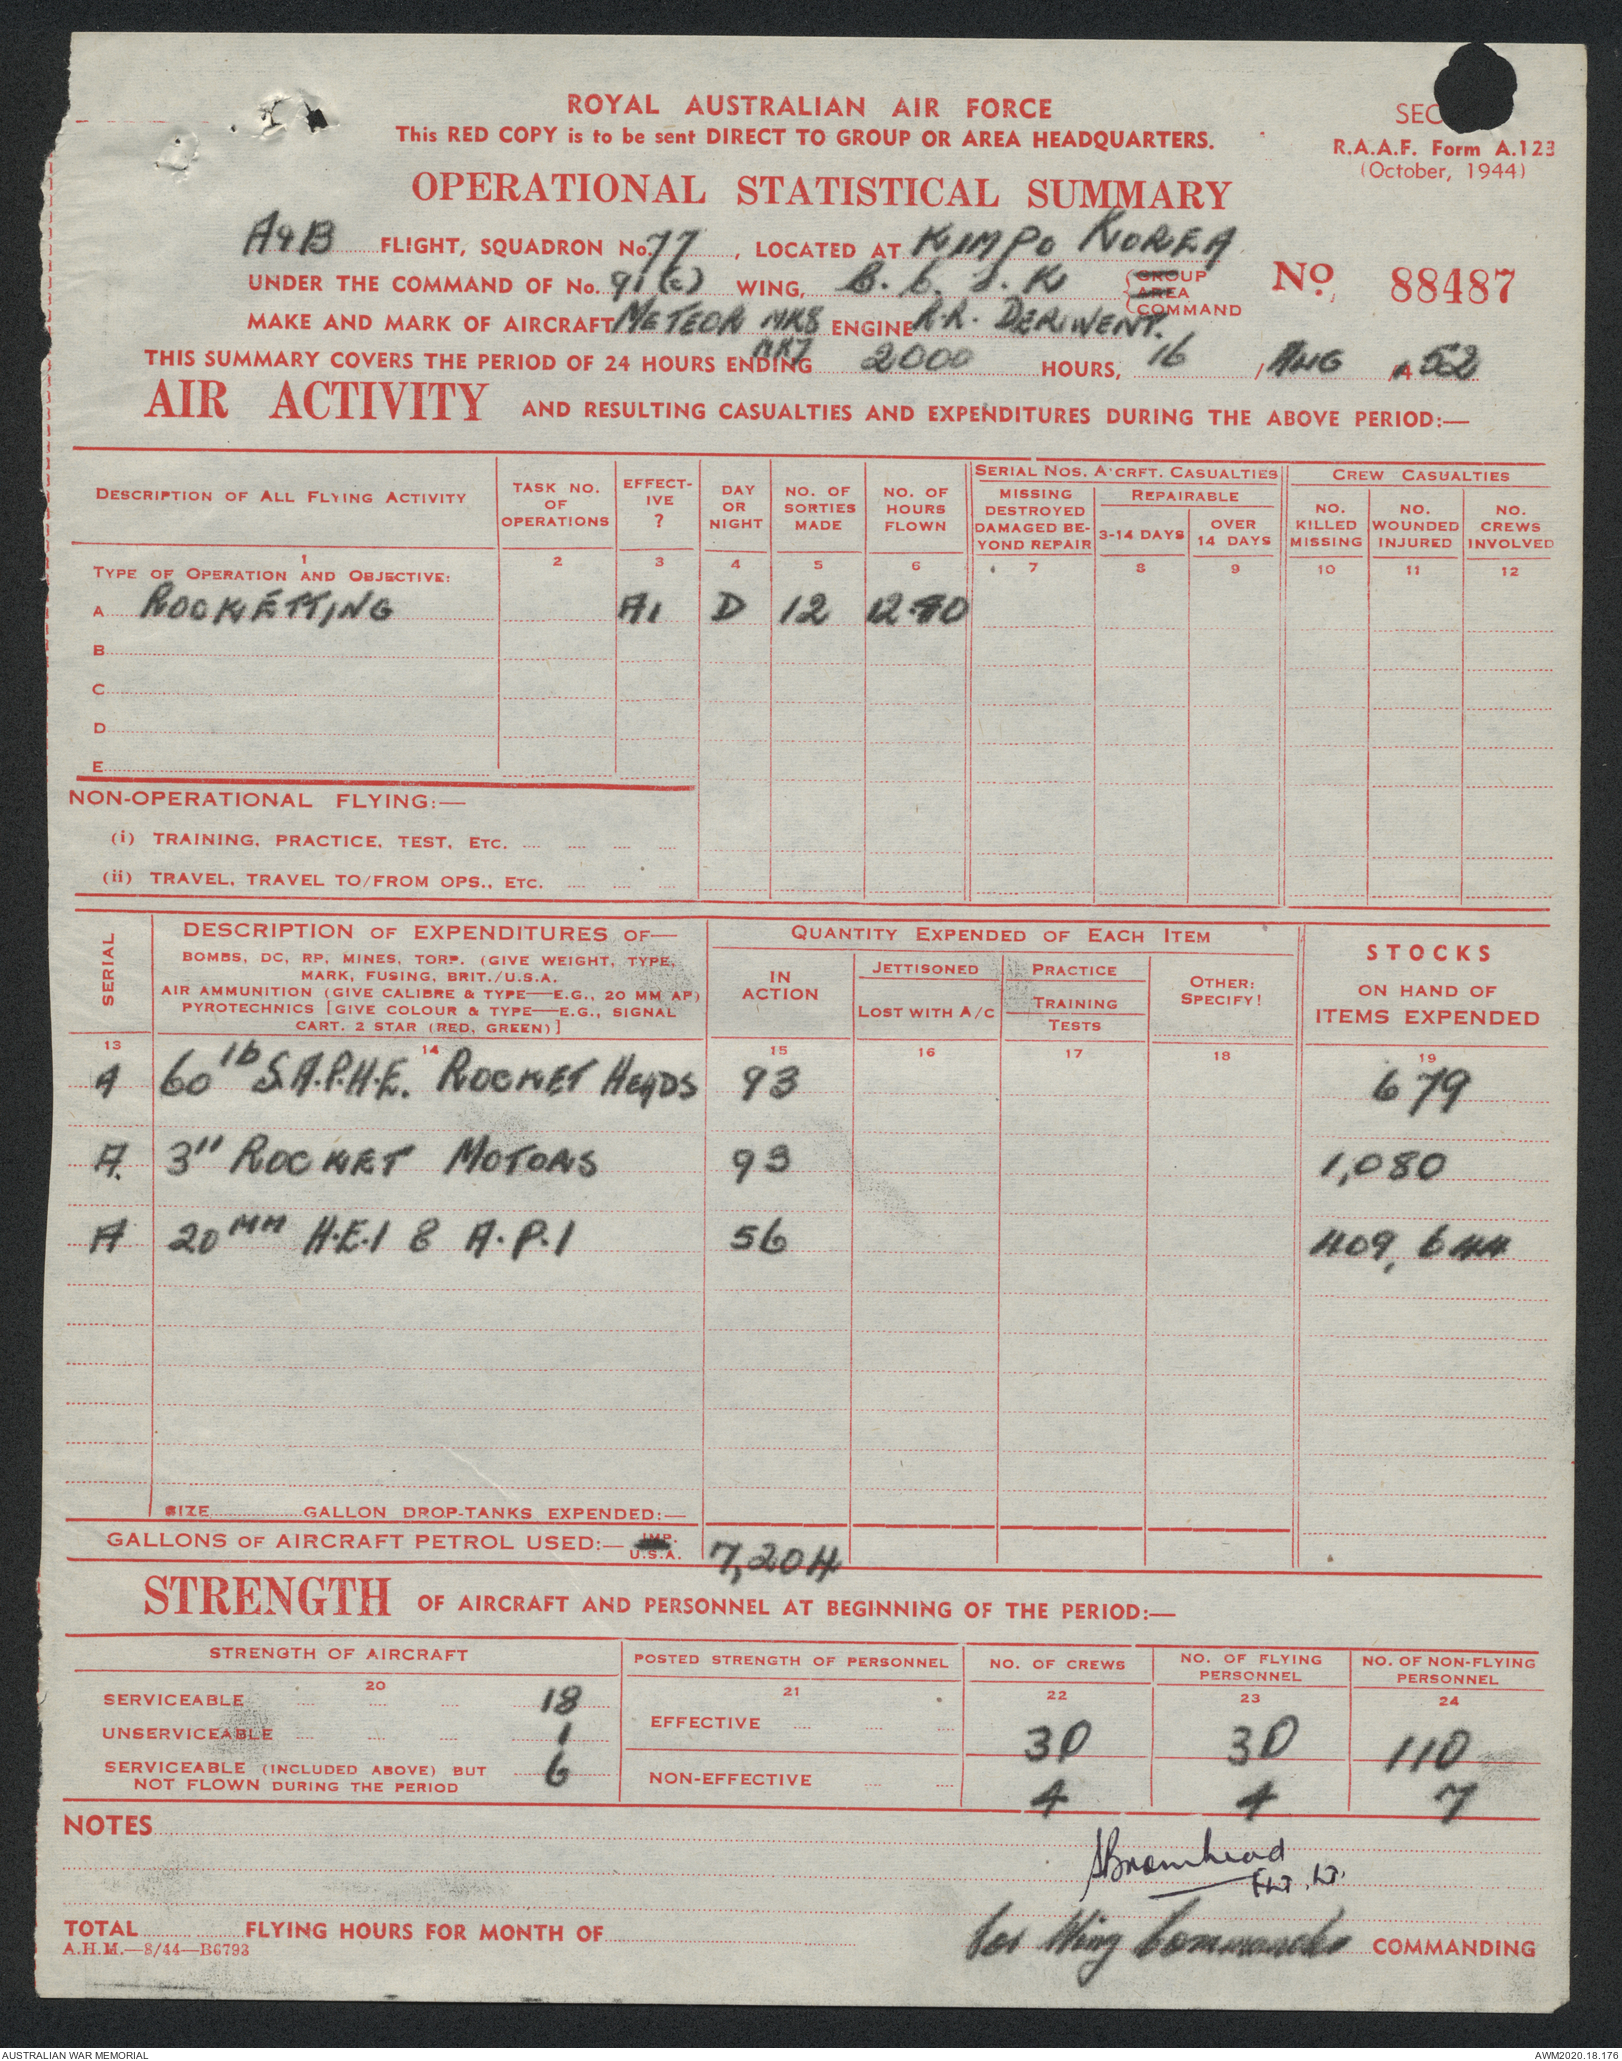 ROYAL AUSTRALIAN AIR FORCE
SEC
This RED COPY is to be sent DIRECT TO GROUP OR AREA HEADQUARTERS.
R.A.A.F. Form A.123
(October, 1944)
OPERATIONAL STATISTICAL SUMMARY
A&B FLIGHT, SQUADRON No. 77, LOCATED AT KIMPO KOREA
UNDER THE COMMAND OF No. 91(C) WING, B.C.J.K {GROUP AREA COMMAND
No. 88487
MAKE AND MARK OF AIRCRAFT METEOR MK8 MK7 ENGINE R.R. DERWENT.
THIS SUMMARY COVERS THE PERIOD OF 24 HOURS ENDING 2000 HOURS, 16 / AUG / 52
AIR ACTIVITY AND RESULTING CASUALTIES AND EXPENDITURES DURING THE ABOVE PERIOD:—
DESCRIPTION OF ALL FLYING ACTIVITY
TASK NO. OF OPERATIONS
EFFECT-IVE ?
DAY OR NIGHT
NO. OF SORTIES MADE
NO. OF HOURS FLOWN
SERIAL NOS. A'CRFT. CASUALTIES
MISSING DESTROYED DAMAGED BE-YOND REPAIR
REPAIRABLE
3-14 DAYS
OVER 14 DAYS
CREW CASUALTIES
NO. KILLED MISSING
NO. WOUNDED INJURED
NO. CREWS INVOLVED
1 2 3 4 5 6 7 8 9 10 11 12
TYPE OF OPERATION AND OBJECTIVE:
A ROCKETTING A1 D 12
B
C
D
E
NON-OPERATIONAL FLYING:—
(i) TRAINING, PRACTICE, TEST, ETC.
(ii) TRAVEL, TRAVEL TO/FROM OPS., ETC.
SERIAL
DESCRIPTION OF EXPENDITURES OF—
BOMBS, DC, RP, MINES, TORP. (GIVE WEIGHT, TYPE,
MARK, FUSING, BRIT./U.S.A.
AIR AMMUNITION (GIVE CALIBRE & TYPE—E.G., 20 MM AP)
PYROTECHNICS [GIVE COLOUR & TYPE—E.G., SIGNAL
CART. 2 STAR (RED, GREEN)]
QUANTITY EXPENDED OF EACH ITEM
IN ACTION
JETTISONED
LOST WITH A/C
PRACTICE
TRAINING
TESTS
OTHER: SPECIFY!
STOCKS
ON HAND OF
ITEMS EXPENDED
13 14 15 16 17 18 19
A 60 lb S.A.P.H.E. ROCKET HEADS 93 679
A. 3" ROCKET MOTORS 93 1,080
A 20 MM H.E.I & A.P.I 56 409,644
SIZE GALLON DROP-TANKS EXPENDED:—
GALLONS OF AIRCRAFT PETROL USED:— IMP. U.S.A. 7,204
STRENGTH OF AIRCRAFT AND PERSONNEL AT BEGINNING OF THE PERIOD:—
STRENGTH OF AIRCRAFT
POSTED STRENGTH OF PERSONNEL
NO. OF CREWS
NO. OF FLYING PERSONNEL
NO. OF NON-FLYING PERSONNEL
20 21 22 23 24
SERVICEABLE 18
UNSERVICEABLE 1
SERVICEABLE (INCLUDED ABOVE) BUT
NOT FLOWN DURING THE PERIOD 6
EFFECTIVE 30 30 110
NON-EFFECTIVE 4 4 7
NOTES
Bromhead
FLT. LT.
TOTAL FLYING HOURS FOR MONTH OF
for Wing Commander COMMANDING
A.H.M.—8/44—B6793
AUSTRALIAN WAR MEMORIAL
AWM2020.18.176